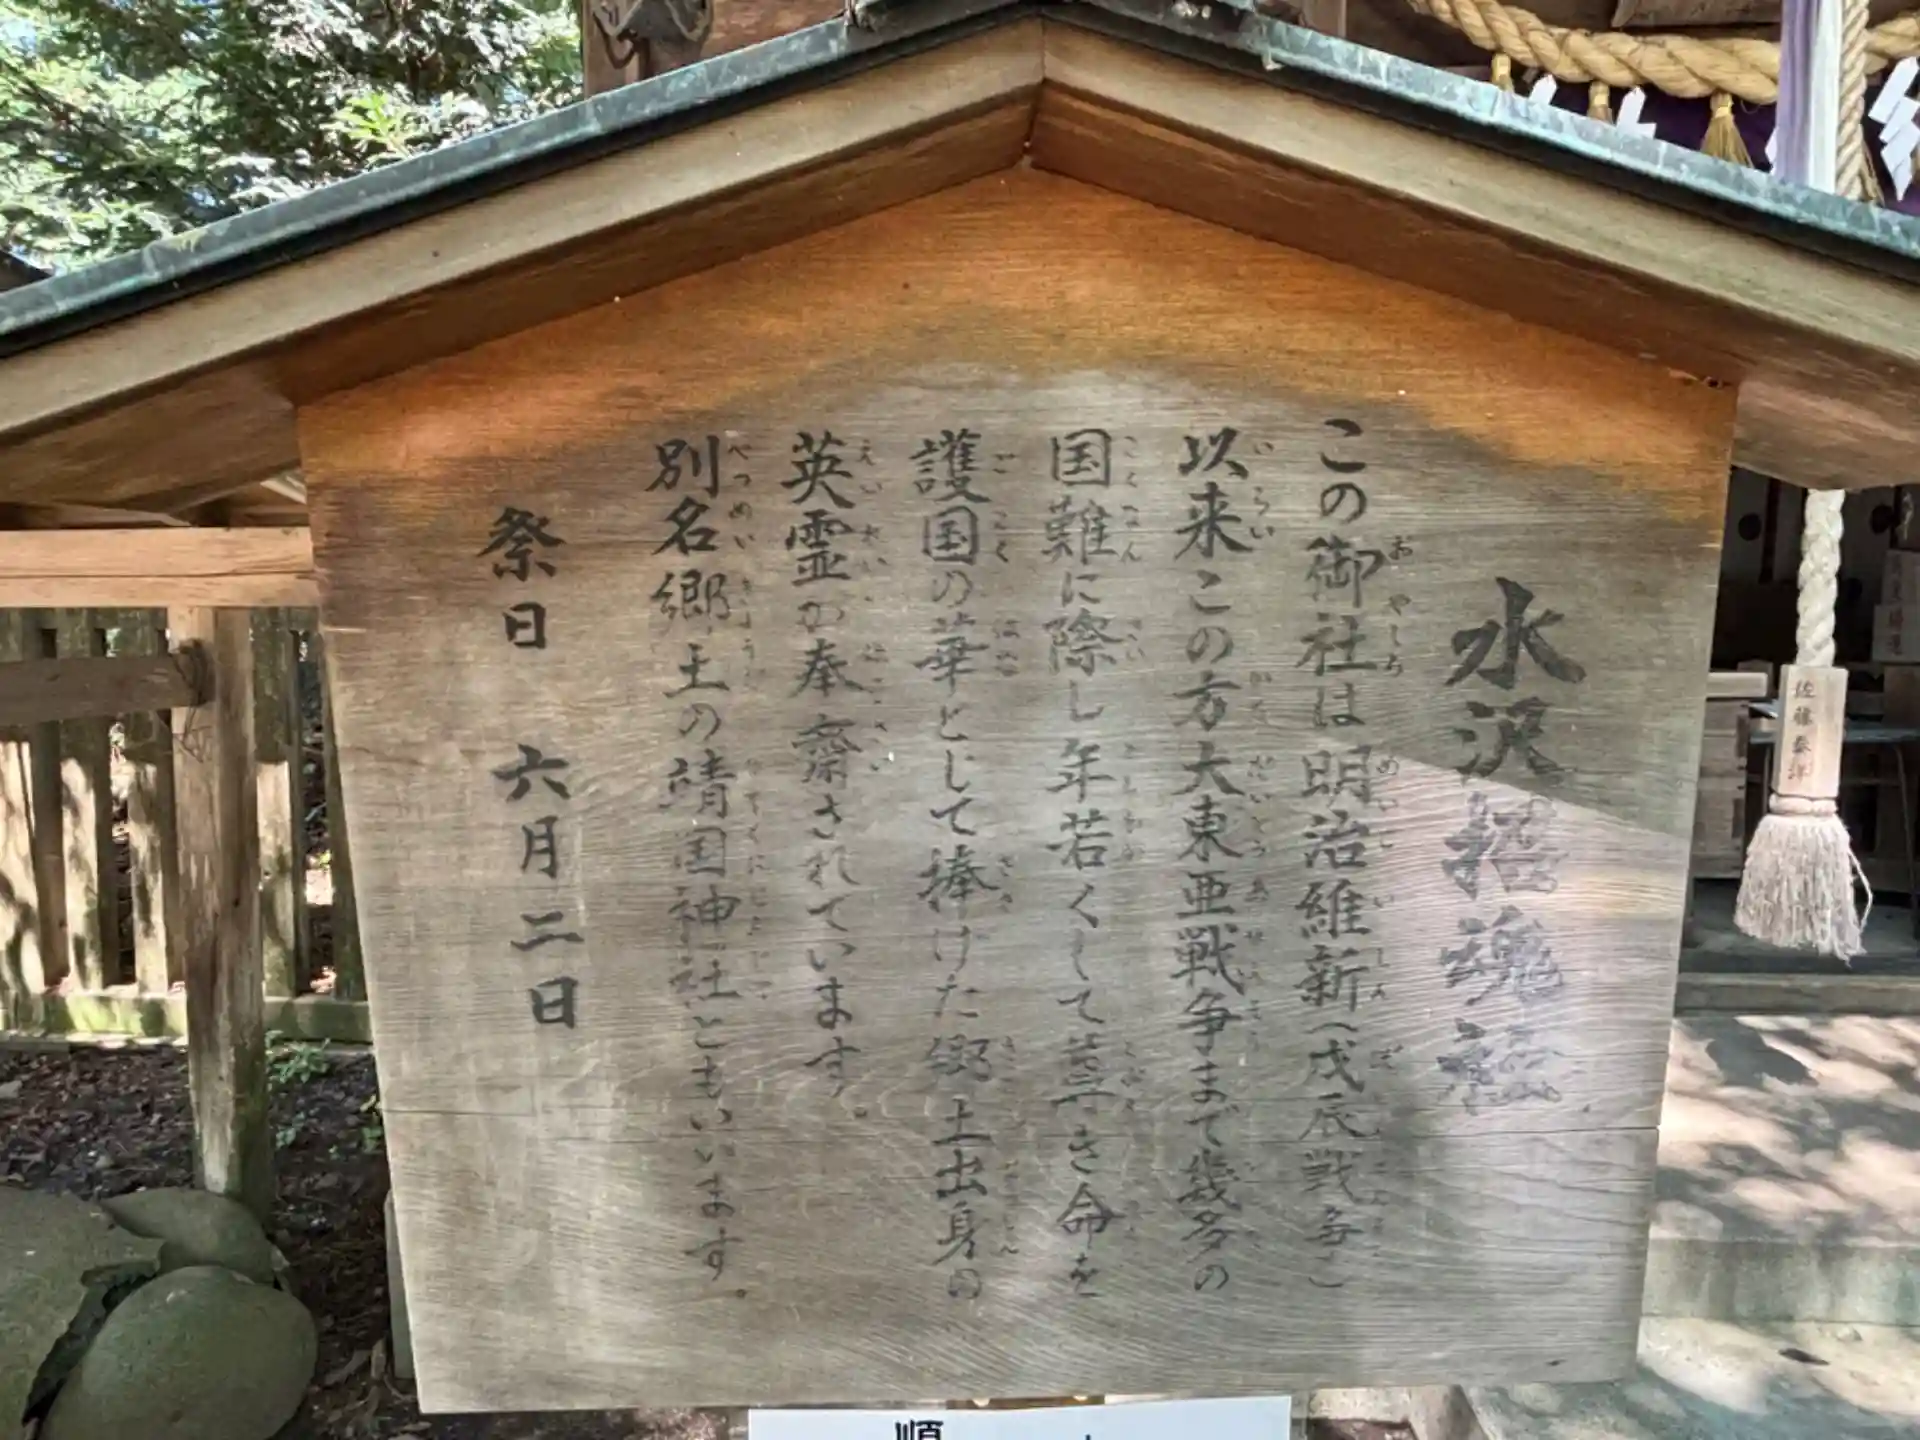 水沢招魂社
この御社は明治維新(戊辰戦争)
以来この方大東亜戦争まで幾多の
国難に際し年若くして尊き命を
護国の華として捧げた郷土出身の
英霊が奉齋されています。
別名郷土の靖国神社ともいいます。
祭日 六月二日
佐藤泰洋
順